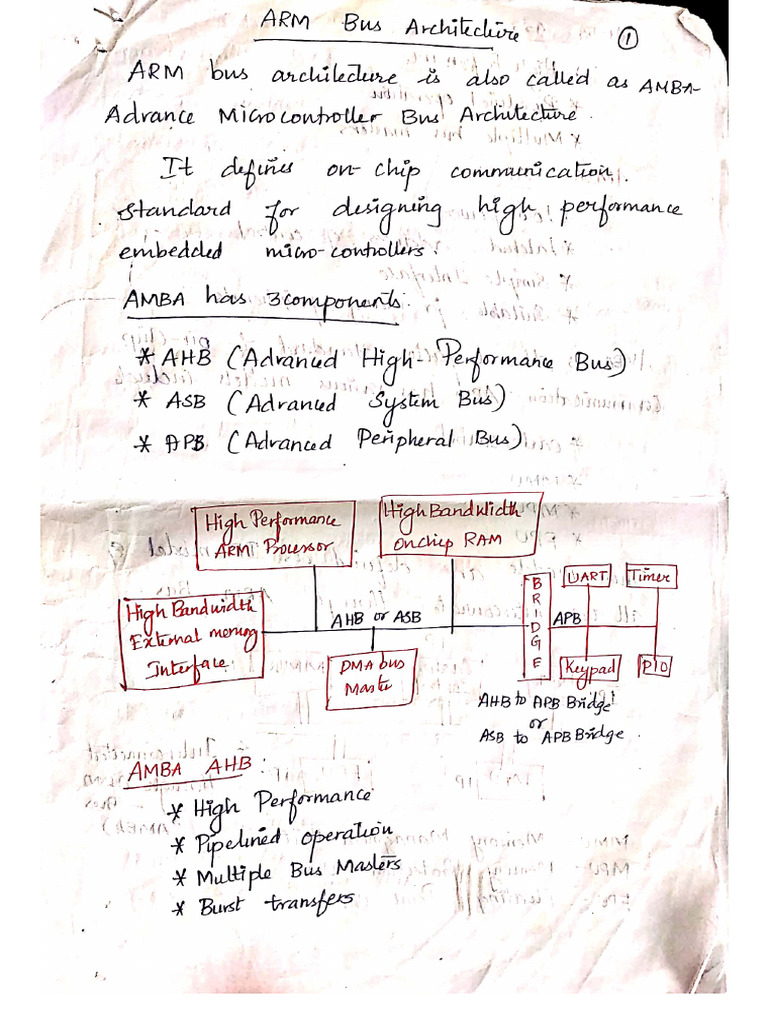 ARM Bus Architecture
①
ARM bus architecture is also called as AMBA-
Advance Microcontroller Bus Architecture.
It defines on-chip communication.
standard for designing high performance
embedded micro-controllers.
AMBA has 3 components.
* AHB (Advanced High-Performance Bus)
* ASB (Advanced System Bus)
* APB (Advanced Peripheral Bus)
High Performance
ARM Processor
High Bandwidth
Onchip RAM
High Bandwidth
External memory
Interface
AHB or ASB
DMA bus
Master
BRIDGE
APB
UART
Timer
Keypad
PIO
AHB to APB Bridge
or
ASB to APB Bridge.
AMBA AHB:
* High Performance
* Pipelined operation
* Multiple Bus Masters
* Burst transfers